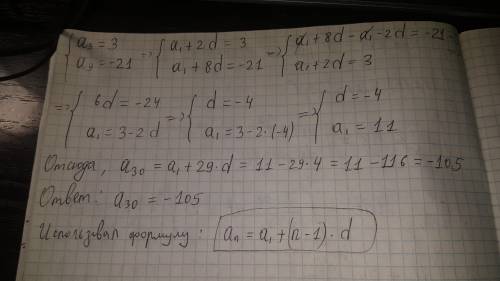 { a₃ = 3 => { a₁ + 2d = 3 => { a₁ + 8d - a₁ - 2d = -21 -
a₉ = -21 a₁ + 8d = -21 a₁ + 2d = 3
=> { 6d = -24 => { d = -4 => { d = -4
a₁ = 3 - 2d a₁ = 3 - 2·(-4) a₁ = 11
Отсюда, a₃₀ = a₁ + 29·d = 11 - 29·4 = 11 - 116 = -105
Ответ: a₃₀ = -105
Использвал формулу: aₙ = a₁ + (n - 1)·d